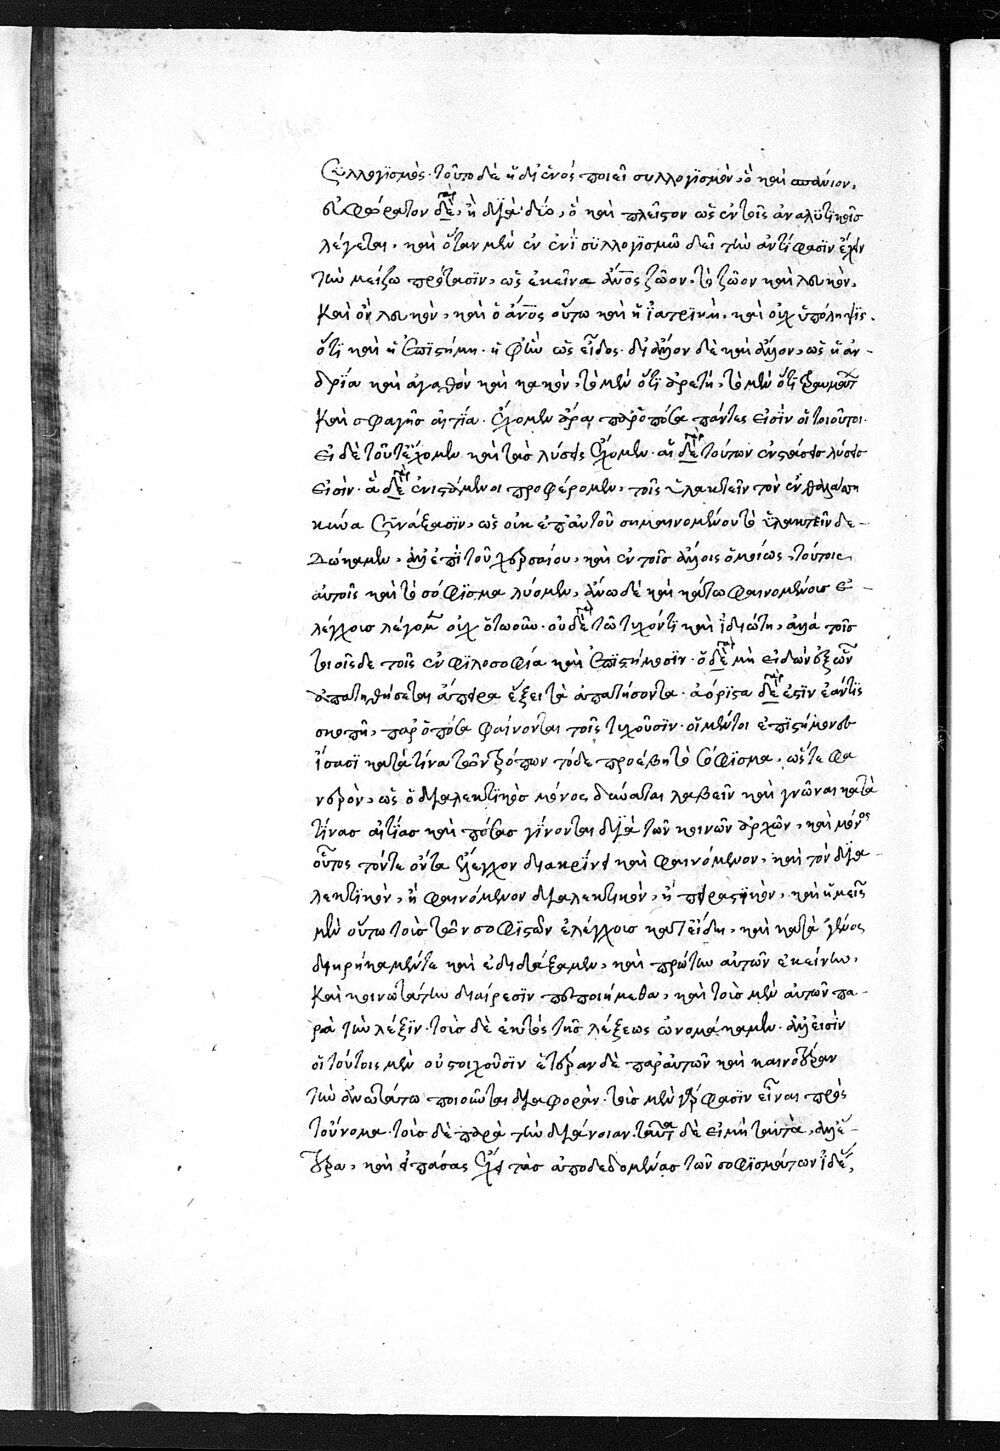 συλλογϊσμός. τοῦτο δὲ ἢ δι' ἑνός ποιεῖ συλλογϊσμὸν, ὃ καὶ σπάνιον,
δὲ γὰρ, ἢ διὰ δύο, ὃ καὶ πλεῖστον ὡς ἐν τοῖς ἀναλϋτικοῖς
λέγεται, καὶ ὅταν μὲν ἐν ἑνὶ συλλογϊσμῶ δεῖ τὴν ἀντίφασϊν ἔχειν
τὴν μείζω πρότασϊν, ὡς ἐκεῖνα ἄνος ζῶον, τὸ ζῶον καὶ λευκὸν,
καὶ οὐ λευκὸν, καὶ ὁ ἄνος οὕτω καὶ ἡ ϊατρικὴ, καὶ οὐχ ὑπόληψϊς.
ὅτι καὶ ἡ ἐπϊστήμη. ἡ ὡς εἶδος. δι' ἄλλον δὲ καὶ ἄλλον, ὡς ἡ ἀν-
δρϊα καὶ ἀγαθὸν καὶ κακὸν, τὸ μὲν ὅτι ἀρετὴ, τὸ μὲν ὅτι τραυμάτ
καὶ σφαγῆς αἰτϊα. ἔχομεν ἄρα παρ' ὁπόσα πάντες εἰσὶν οἱ τοιοῦτοι.
εἰ δὲ τοῦτ' ἔχομεν καὶ τὰς λύσεις ἔχομεν. αἱ δὲ γὰρ τούτων ἐνστάσεις λύσεις
εἰσὶν. ἃ δὲ γὰρ ἐνιστάμενοι προφέρομεν, τοῖς ὑλακτεῖν τὸν ἐν θαλάττη
κύνα συνάξασϊν, ὡς οὐκ ἐπ' αὐτοῦ σημαινομένου τὸ ὑλακτεῖν δε-
δώκαμεν, ἀλλ' ἐπὶ τοῦ χερσαίου, καὶ ἐν τοῖς ἄλλοις ὁμοίως, τούτοις
αὐτοῖς καὶ τὸ σόφϊσμα λύομεν, ἄνω δὲ καὶ κάτω φαινομένοις ἐ-
λέγχοις λέγομεν οὐχ ὁτωοῦν. οὐ δὲ γὰρ τῶ τυχόντι καὶ ϊδιώτη, ἀλλὰ τοῖς
τοιοῖσδε τοῖς ἐν φϊλοσοφία καὶ ἐπϊστήμοσϊν. ὁ δὲ γὰρ μὴ εἰδὼς ἐξ ὧν
ἀπατηθήσεται ἄπειρα ἕξει τὰ ἀπατήσοντα. ἀόρϊστα δὲ γὰρ ἐστὶν ἐάν τϊς
σκοπῆ, παρ' ὁπόσα φαίνονται τοῖς τυχοῦσϊν. οἱ μέντοι ἐπϊστήμονες
ἴσασϊ κατὰ τίνα τῶν τρόπων τόδε προέβη τὸ σόφϊσμα, ὥστε φα
νερὸν, ὡς ὁ διαλεκτϊκὸς μόνος δύναται λαβεῖν καὶ γνῶναι κατὰ
τίνας αἰτίας καὶ πόσας γίνονται διὰ τῶν κοινῶν ἀρχῶν, καὶ μόνος
οὗτος τόν τε ὄντα ἔλεγχον διακρίνει καὶ φαινόμενον, καὶ τὸν δια-
λεκτϊκὸν, ἢ φαινόμενον διαλεκτικὸν, ἢ πειραστϊκὸν, καὶ ἡμεῖς
μὲν οὕτω τοὺς τῶν σοφϊστῶν ἐλέγχοις κατ' εἴδη, καὶ κατὰ γένος
διηρήκαμέν τε καὶ ἐδιδάξαμεν, καὶ πρώτην αὐτῶν ἐκείνην,
καὶ κοινωτάτην διαίρεσϊν πεποιήμεθα, καὶ τοὺς μὲν αὐτῶν πα-
ρὰ τὴν λέξϊν. τοὺς δὲ ἐκτὸς τῆς λέξεως ὠνομάκαμεν. ἀλλ' εἰσὶν
οἳ τούτοις μὲν οὐ στοιχοῦσϊν ἑτέραν δὲ παρ' αὐτῶν καὶ καινοτέραν
τὴν ἀνωτάτω ποιοῦνται διαφορὰν. τοὺς μὲν γὰρ φασὶν εἶναι πρὸς
τοὔνομα. τοὺς δὲ παρὰ τὴν διάνοιαν. ταῦτα δὲ εἰ μὴ ταυτὰ, ἀλλ' ἕ-
τερα, καὶ ἁπάσας ἔχει τὰς ἀποδεδομένας τῶν σοφϊσμάτων ἰδέ,